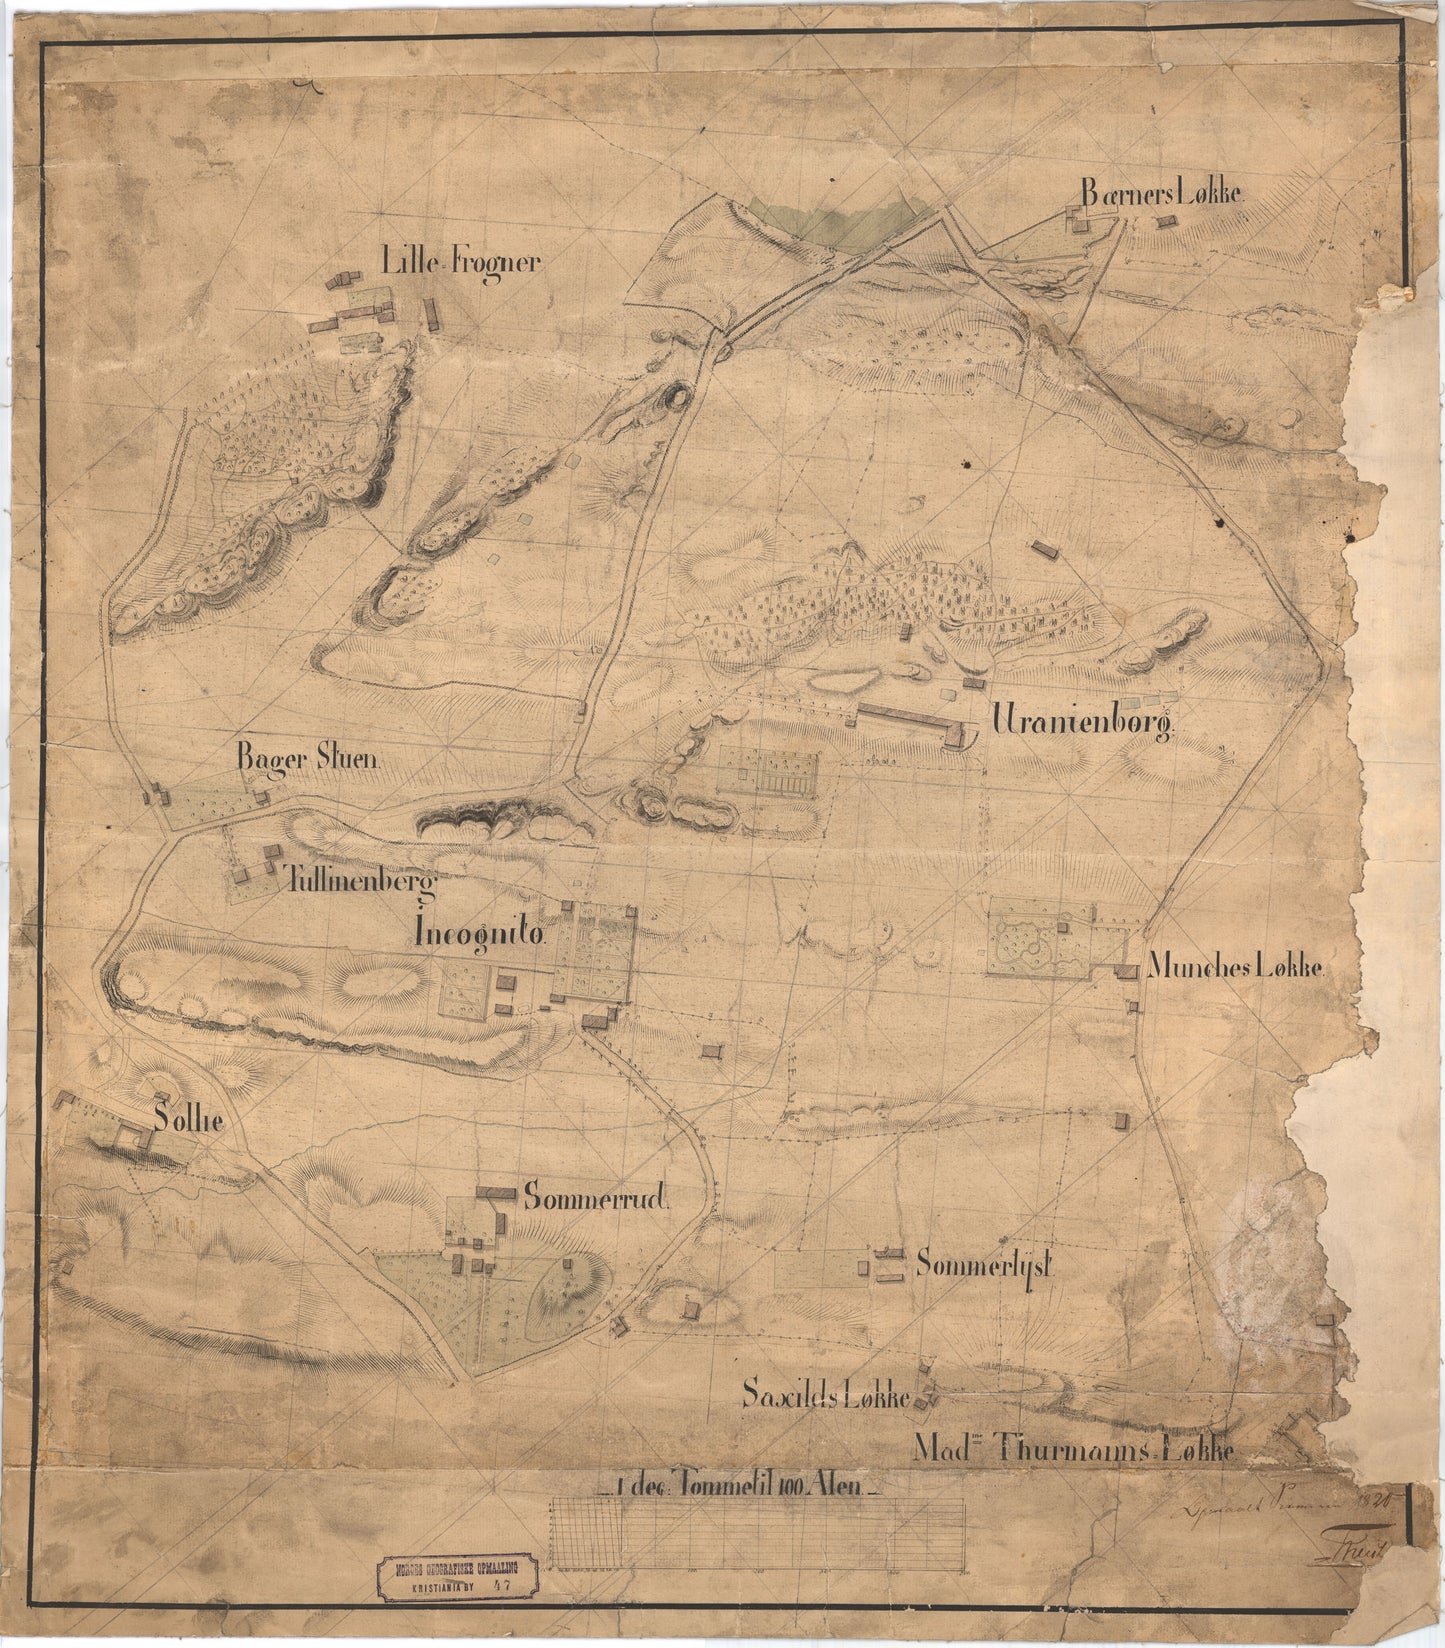 Bærners Løkke.
Lille-Frogner
Uranienborg.
Bager Stuen.
Tullinenberg
Incognito.
Munches Løkke.
Sollie
Sommerrud.
Sommerlyst.
Saxilds Løkke
Mad.me Thurmanns-Løkke.
1 dec: Tomme til 100 Alen
1820
NORGES GEOGRAFISKE OPMAALING
KRISTIANIA BY 47